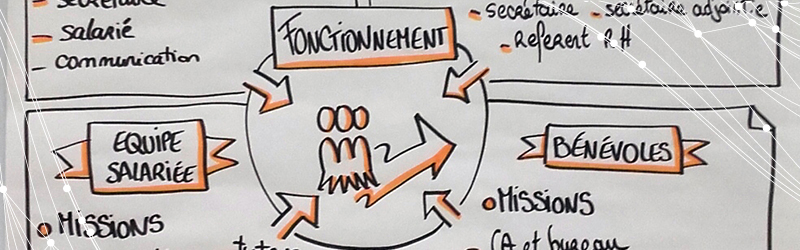 secrétaire
- salarié
- communication
FONCTIONNEMENT
- secrétaire - secrétaire adjointe
- Référent RH
EQUIPE
SALARIÉE
MISSIONS
BÉNÉVOLES
MISSIONS
CA et bureau